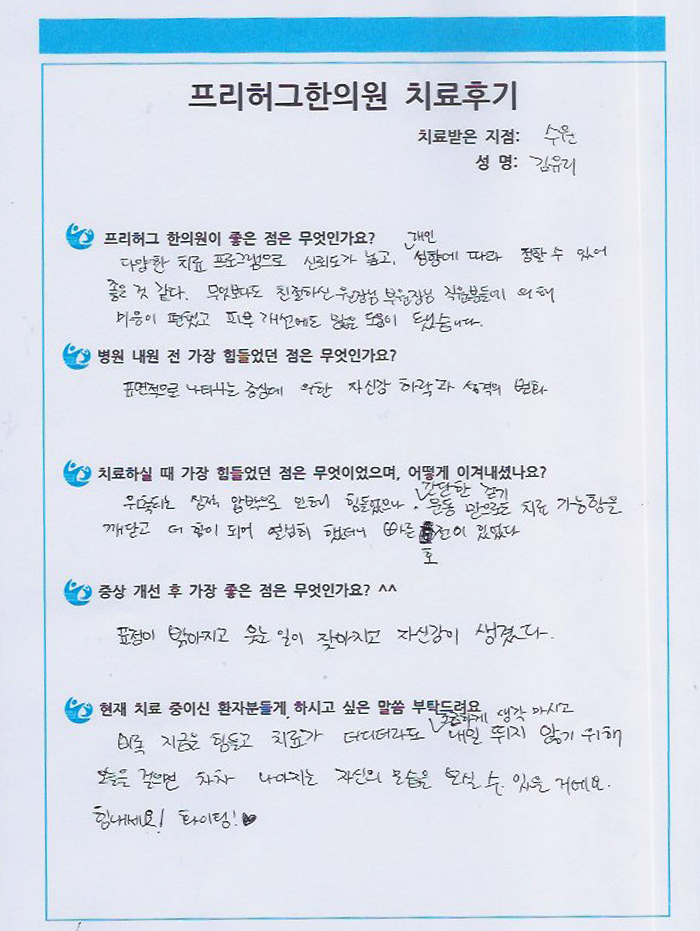 프리허그한의원 치료후기
치료받은 지점: 수원
성 명: 김유리
프리허그 한의원이 좋은 점은 무엇인가요?
다양한 치료 프로그램으로 신뢰도가 높고, 개인 상황에 따라 정할 수 있어
좋은 것 같다. 무엇보다도 친절하신 원장님 부원장님 직원분들에 의해
마음이 편했고 피부 개선에도 많은 도움이 됐습니다.
병원 내원 전 가장 힘들었던 점은 무엇인가요?
표면적으로 나타나는 증상에 의한 자신감 하락과 성격의 변화
치료하실 때 가장 힘들었던 점은 무엇이었으며, 어떻게 이겨내셨나요?
심적 압박으로 인해 힘들었으나, 간단한 걷기 운동 만으로도 치료 가능함을
깨닫고 더 힘이 되어 열심히 했더니 빠른 호전이 있었다
증상 개선 후 가장 좋은 점은 무엇인가요? ^^
표정이 밝아지고 웃는 일이 잦아지고 자신감이 생겼다.
현재 치료 중이신 환자분들게 하시고 싶은 말씀 부탁드려요
비록 지금은 힘들고 치료가 더디더라도 조급하게 생각 마시고 내일 뛰지 않기 위해
오늘을 걸으면 차차 나아지는 자신의 모습을 보실 수 있을 거에요.
힘내세요! 화이팅! ♥